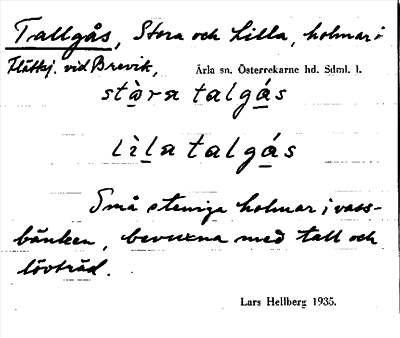 Tallgås, Stora och Lilla, holmar i
Flättsj. vid Brevik, Ärla sn. Österrekarne hd. Sdml. l.
stòra talgás
lìla talgás
Små steniga holmar i vass-
bänken, bevuxna med tall och
lövträd.
Lars Hellberg 1935.